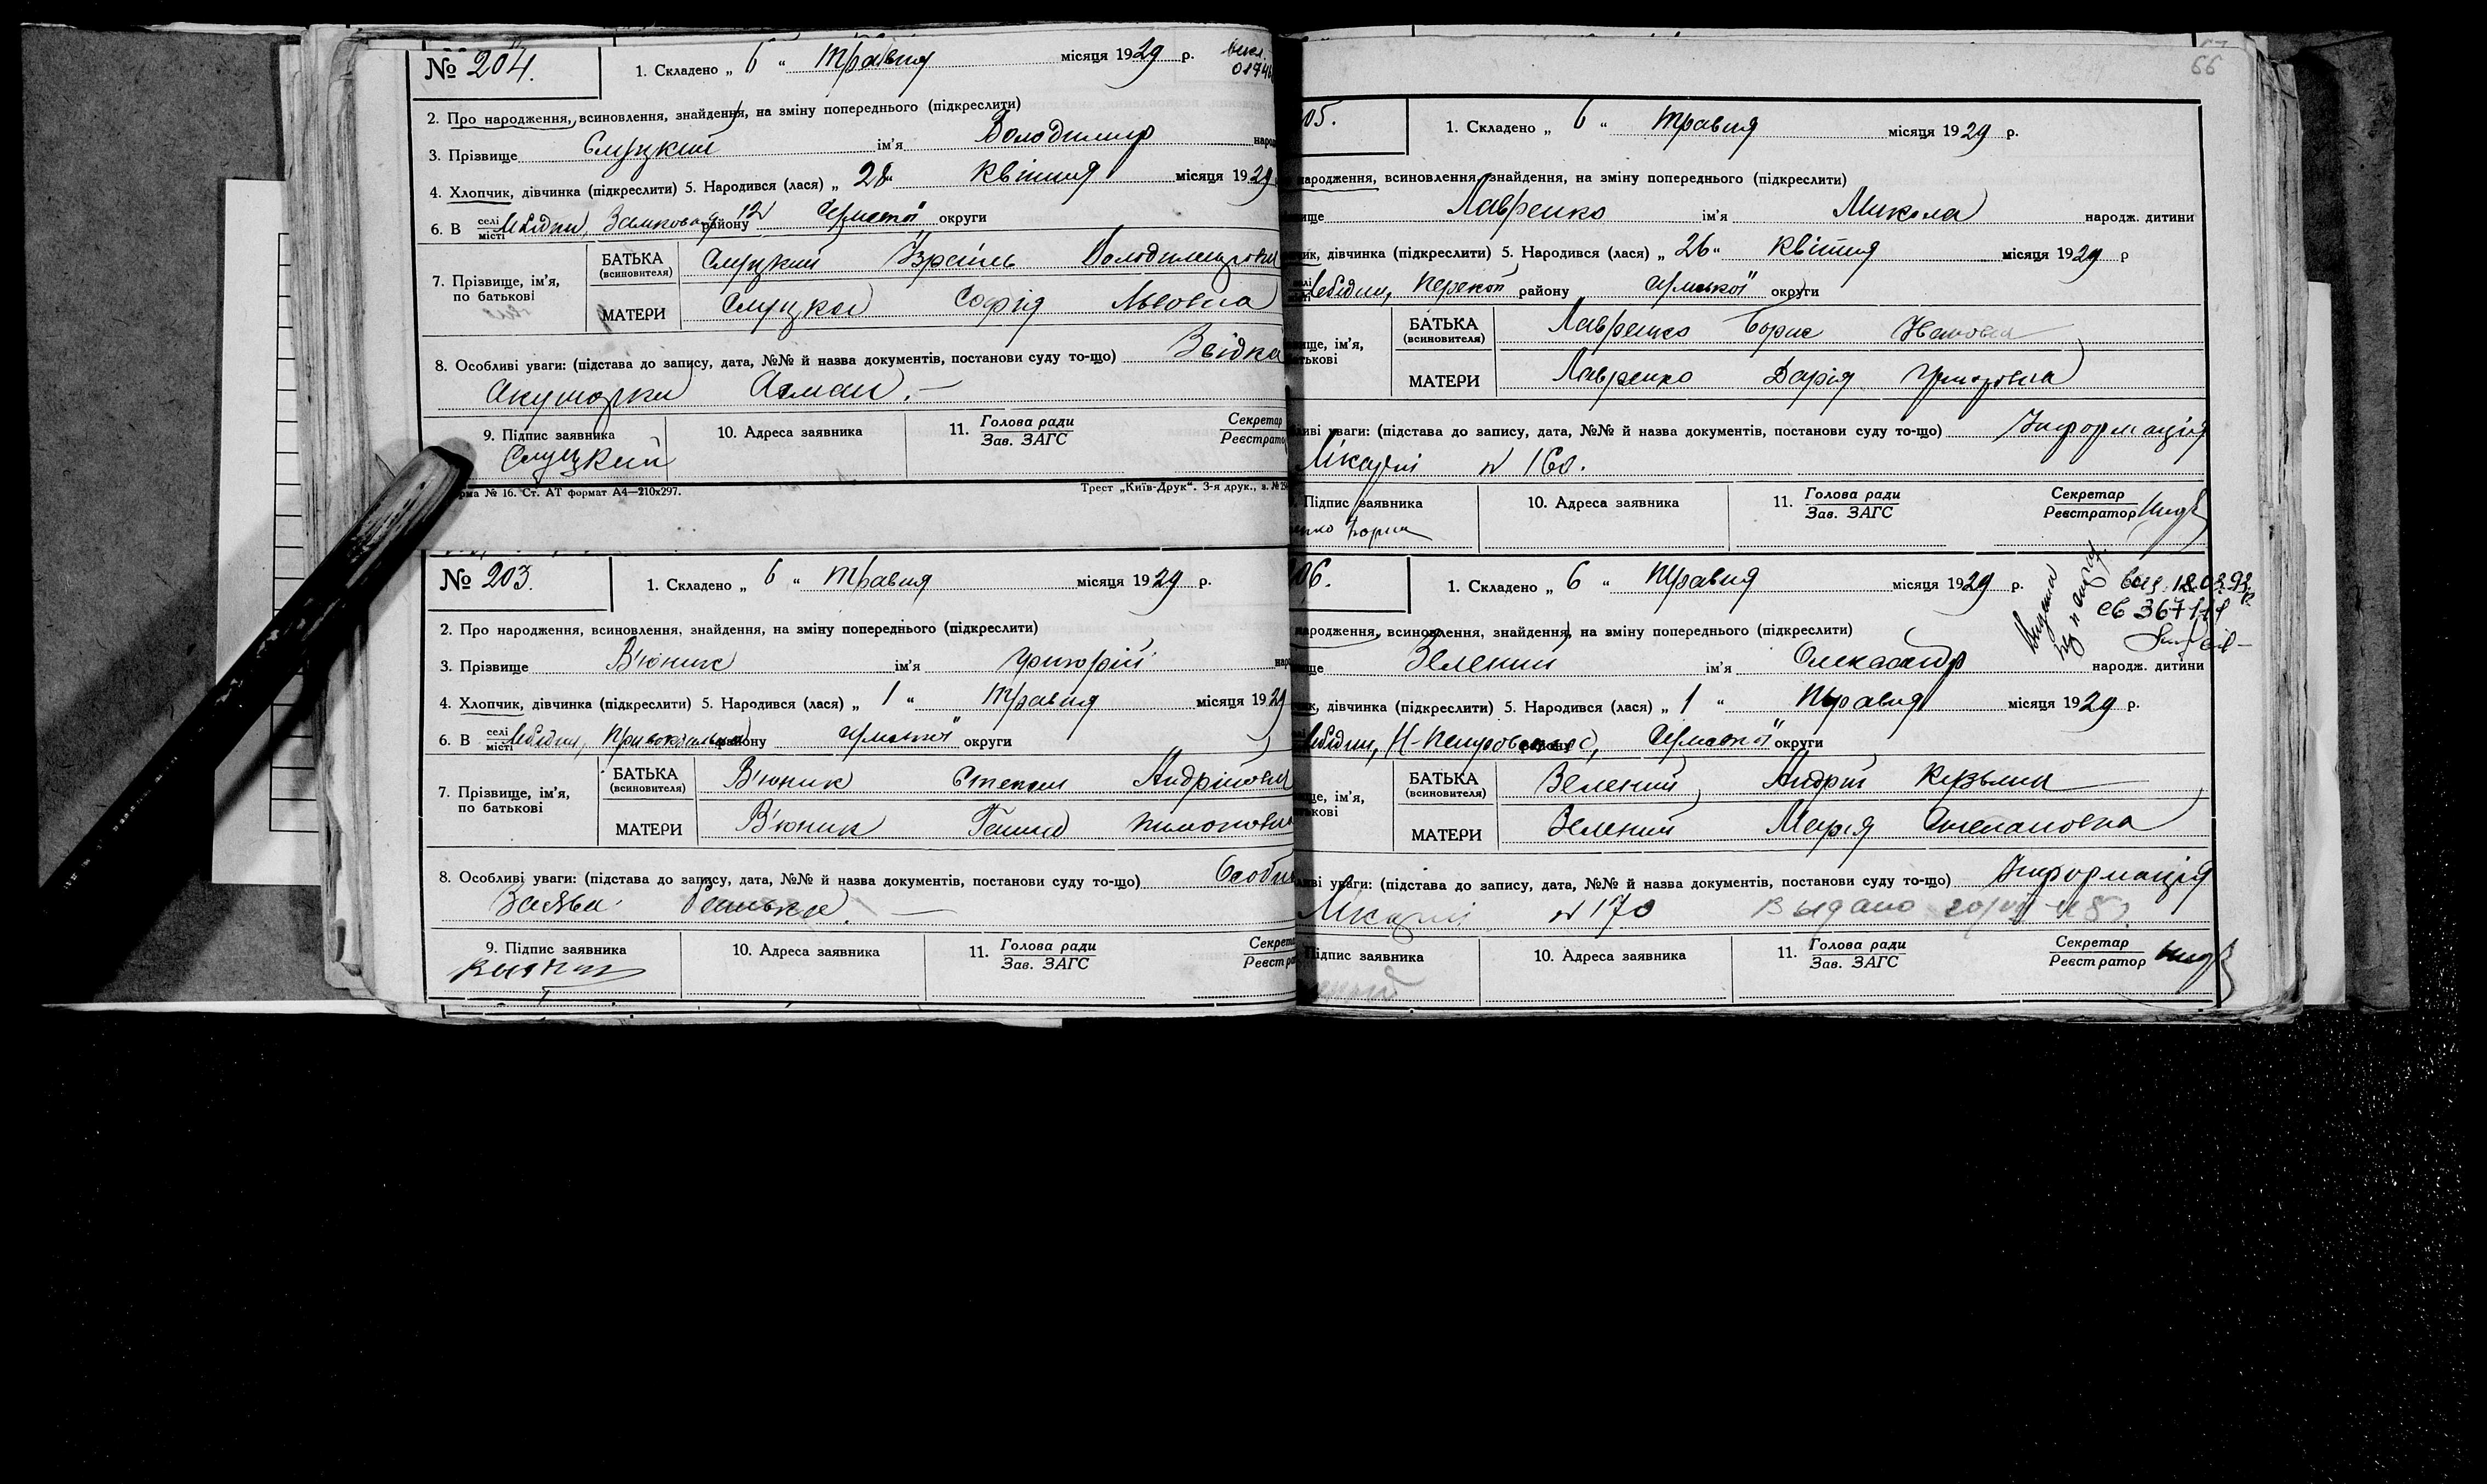 № 204.
1. Складено „ 6 “ травня місяця 1929 р.
2. Про народження, всиновлення, знайдення, на зміну попереднього (підкреслити)
3. Прізвище Слуцкий ім'я Володимир
4. Хлопчик, дівчинка (підкреслити) 5. Народився (лася) „ 28 “ квітня місяця 1929
6. В селі місті Лебедин, Замковая 12 району Сумської округи
7. Прізвище, ім'я, по батькові
БАТЬКА (всиновителя) Слуцкий Ізраїль
МАТЕРИ Слуцка Софія Львовна
8. Особливі уваги: (підстава до запису, дата, №№ й назва документів, постанови суду то-що)
Акушорки
9. Підпис заявника
10. Адреса заявника
11. Голова ради Зав. ЗАГС
Слуцкий
Ст. АТ формат А4—210х297.
Трест „Київ-Друк“. 3-я друк.,
№ 203.
1. Складено „ 6 “ травня місяця 1929 р.
2. Про народження, всиновлення, знайдення, на зміну попереднього (підкреслити)
3. Прізвище В'юник ім'я Григорій
4. Хлопчик, дівчинка (підкреслити) 5. Народився (лася) „ 1 “ травня місяця 1929
6. В селі місті Лебедин, Привокзальна району Сумської округи
7. Прізвище, ім'я, по батькові
БАТЬКА (всиновителя) В'юник Степан
МАТЕРИ В'юник Ганна
8. Особливі уваги: (підстава до запису, дата, №№ й назва документів, постанови суду то-що)
Заява батька.
9. Підпис заявника
10. Адреса заявника
11. Голова ради Зав. ЗАГС
66
05.
1. Складено „ 6 “ травня місяця 1929 р.
народження, всиновлення, знайдення, на зміну попереднього (підкреслити)
Лавренко ім'я Микола народж. дитини
дівчинка (підкреслити) 5. Народився (лася) „ 26 “ квітня місяця 1929 р
Лебедин, Перекоп району Сумської округи
БАТЬКА (всиновителя) Лавренко Борис
МАТЕРИ Лавренко Дарія
уваги: (підстава до запису, дата, №№ й назва документів, постанови суду то-що) Інформація
Лікарні № 160.
Підпис заявника
10. Адреса заявника
11. Голова ради Зав. ЗАГС
Секретар Реєстратор
06.
1. Складено „ 6 “ травня місяця 1929 р.
народження, всиновлення, знайдення, на зміну попереднього (підкреслити)
Зелений ім'я Олександр народж. дитини
дівчинка (підкреслити) 5. Народився (лася) „ 1 “ травня місяця 1929 р.
Лебедин, району Сумської округи
БАТЬКА (всиновителя) Зелений Андрій Кузьмич
МАТЕРИ Зелений Марія Степановна
уваги: (підстава до запису, дата, №№ й назва документів, постанови суду то-що) Інформація
Лікарні № 170 Выдано
Підпис заявника
10. Адреса заявника
11. Голова ради Зав. ЗАГС
Секретар Реєстратор